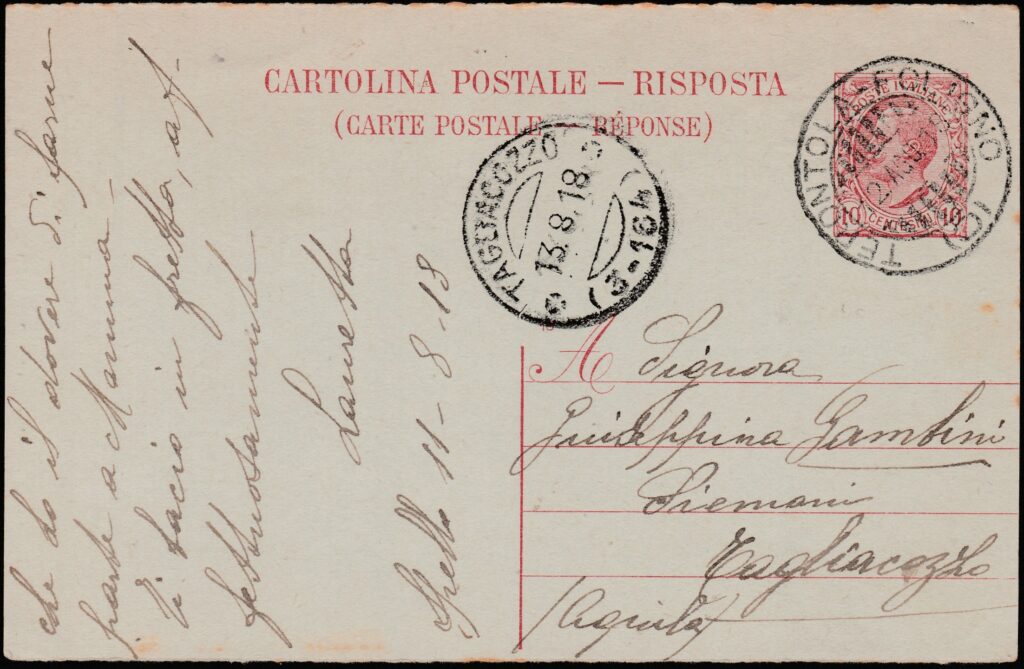 CARTOLINA POSTALE — RISPOSTA
(CARTE POSTALE — RÉPONSE)
POSTE ITALIANE
10 CENTESIMI 10
TERONTOLA-FOLIGNO
TAGLIACOZZO
13.8.18
(3-164)
A Signora
Giuseppina Gambini
Siemoni
Tagliacozzo
(Aquila)
che ho il dovere di farne
parte a Mamma -
Vi bacio in fretta, aff-
fettuosamente
Lauretta
Spello 11-8-18